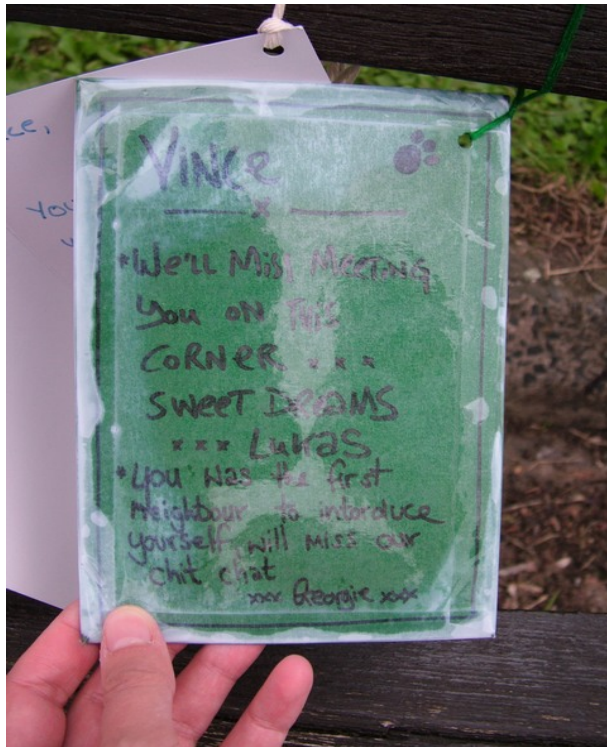 ce,
You
Vince
x
*We'll Miss Meeting
You on this
CORNER x x x
SWEET DREAMS
x x x Lukas
*You was the first
neighbour to intorduce
yourself, will miss our
chit chat
xxx Georgie xxx